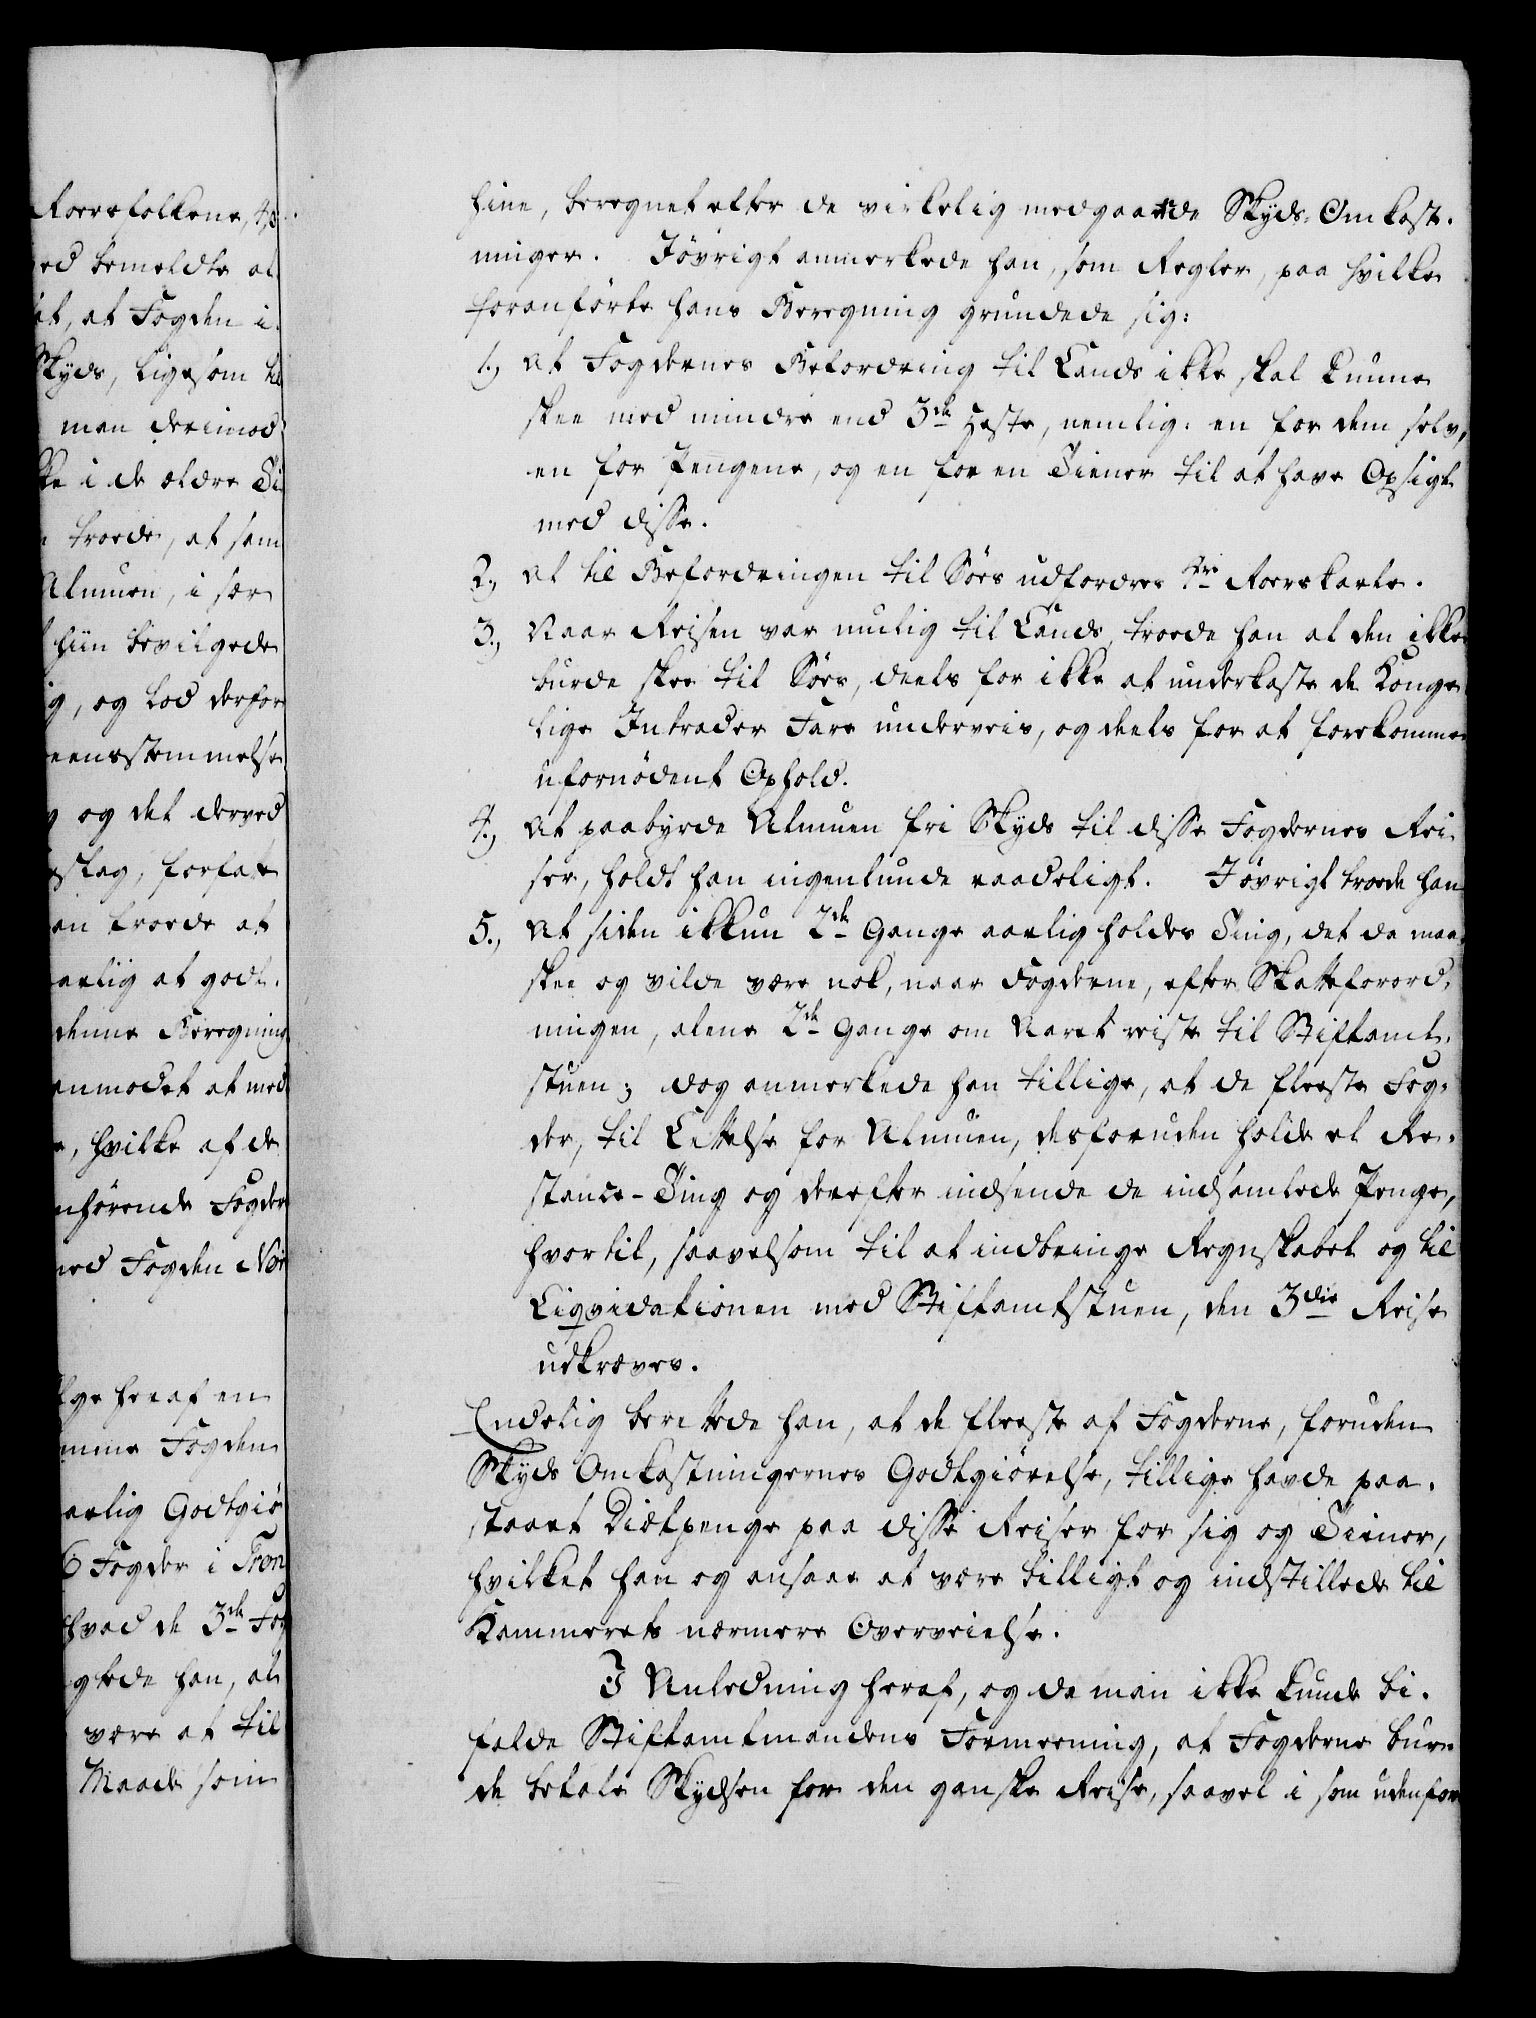 Roersfolkene,
ved bemeldte at
at, at Fogden i
Skyds, ligesom til
man derimod
ke i de ældre Ti
troede, at som
Almuen, i sær
hiin bevilgede
ig, og lod derfor
eensstemmelse
og det derved
slag, forfatt
an troede at
aarlig at godt-
denne Beregning
anmodet at med
e, hvilke af de
nhörende Fogder
med Fogden Nor
lge heraf en
mme Fogden
aarlig Godtgiö
6 Fogder i Tron
hvad de 3de Fog
gtede han, at
være at til
Maade som
hine, beregnet efter de virkelig medgaaende Skyds-Omkost-
ninger. Iövrigt anmerkede han, som Regler, paa hvilke
foranförte hans Beregning grundede sig:
1., At Fogdernes Befordring til Lands ikke skal kunne
skee med mindre end 3de Heste, nemlig: en for dem selv,
en for Pengene, og en for en Tiener til at have Opsigt
med disse.
2., At til Befordringen til Söes udfordres 4re Roerskarle.
3., Naar Reisen var mulig til Lands, troede han at den ikke
burde skee til Söes, deels for ikke at underkaste de Konge-
lige Intrader Fare underveis, og deels for at forekomme
ufornödent Ophold.
4., At paabyrde Almuen fri Skyds til disse Fogdernes Rei-
ser, holdt han ingenlunde raadeligt. Iövrigt troede han
5., At siden ikkun 2de Gange aarlig holdes Ting, det da maa-
skee og vilde være nok, naar Fogderne, efter Skatteforord-
ningen, alene 2de Gange om Aaret reiste til Stiftamt-
stuen; dog anmerkede han tillige, at de fleeste Fog-
der, til Lettelse for Almuen, desforuden holde et Re-
stance-Ting og derefter indsende de indsamlede Penge,
hvortil, saavelsom til at indbringe Regnskabet og til
Liqvidationen med Stiftamtstuen, den 3die Reise
udkræves.
Endelig berettede han, at de fleeste af Fogderne, foruden
Skyds Omkostningernes Godtgiörelse, tillige havde paa-
staaet Diætpenge paa disse Reiser for sig og Tiener,
hvilket han og ansaae at være billigt og indstillede til
Kammerets nærmere Overveielse.
I Anledning heraf, og da man ikke kunde bi-
falde Stiftamtmandens Formeening, at Fogderne bur-
de betale Skydsen for den ganske Reise, saavel i som udenfor